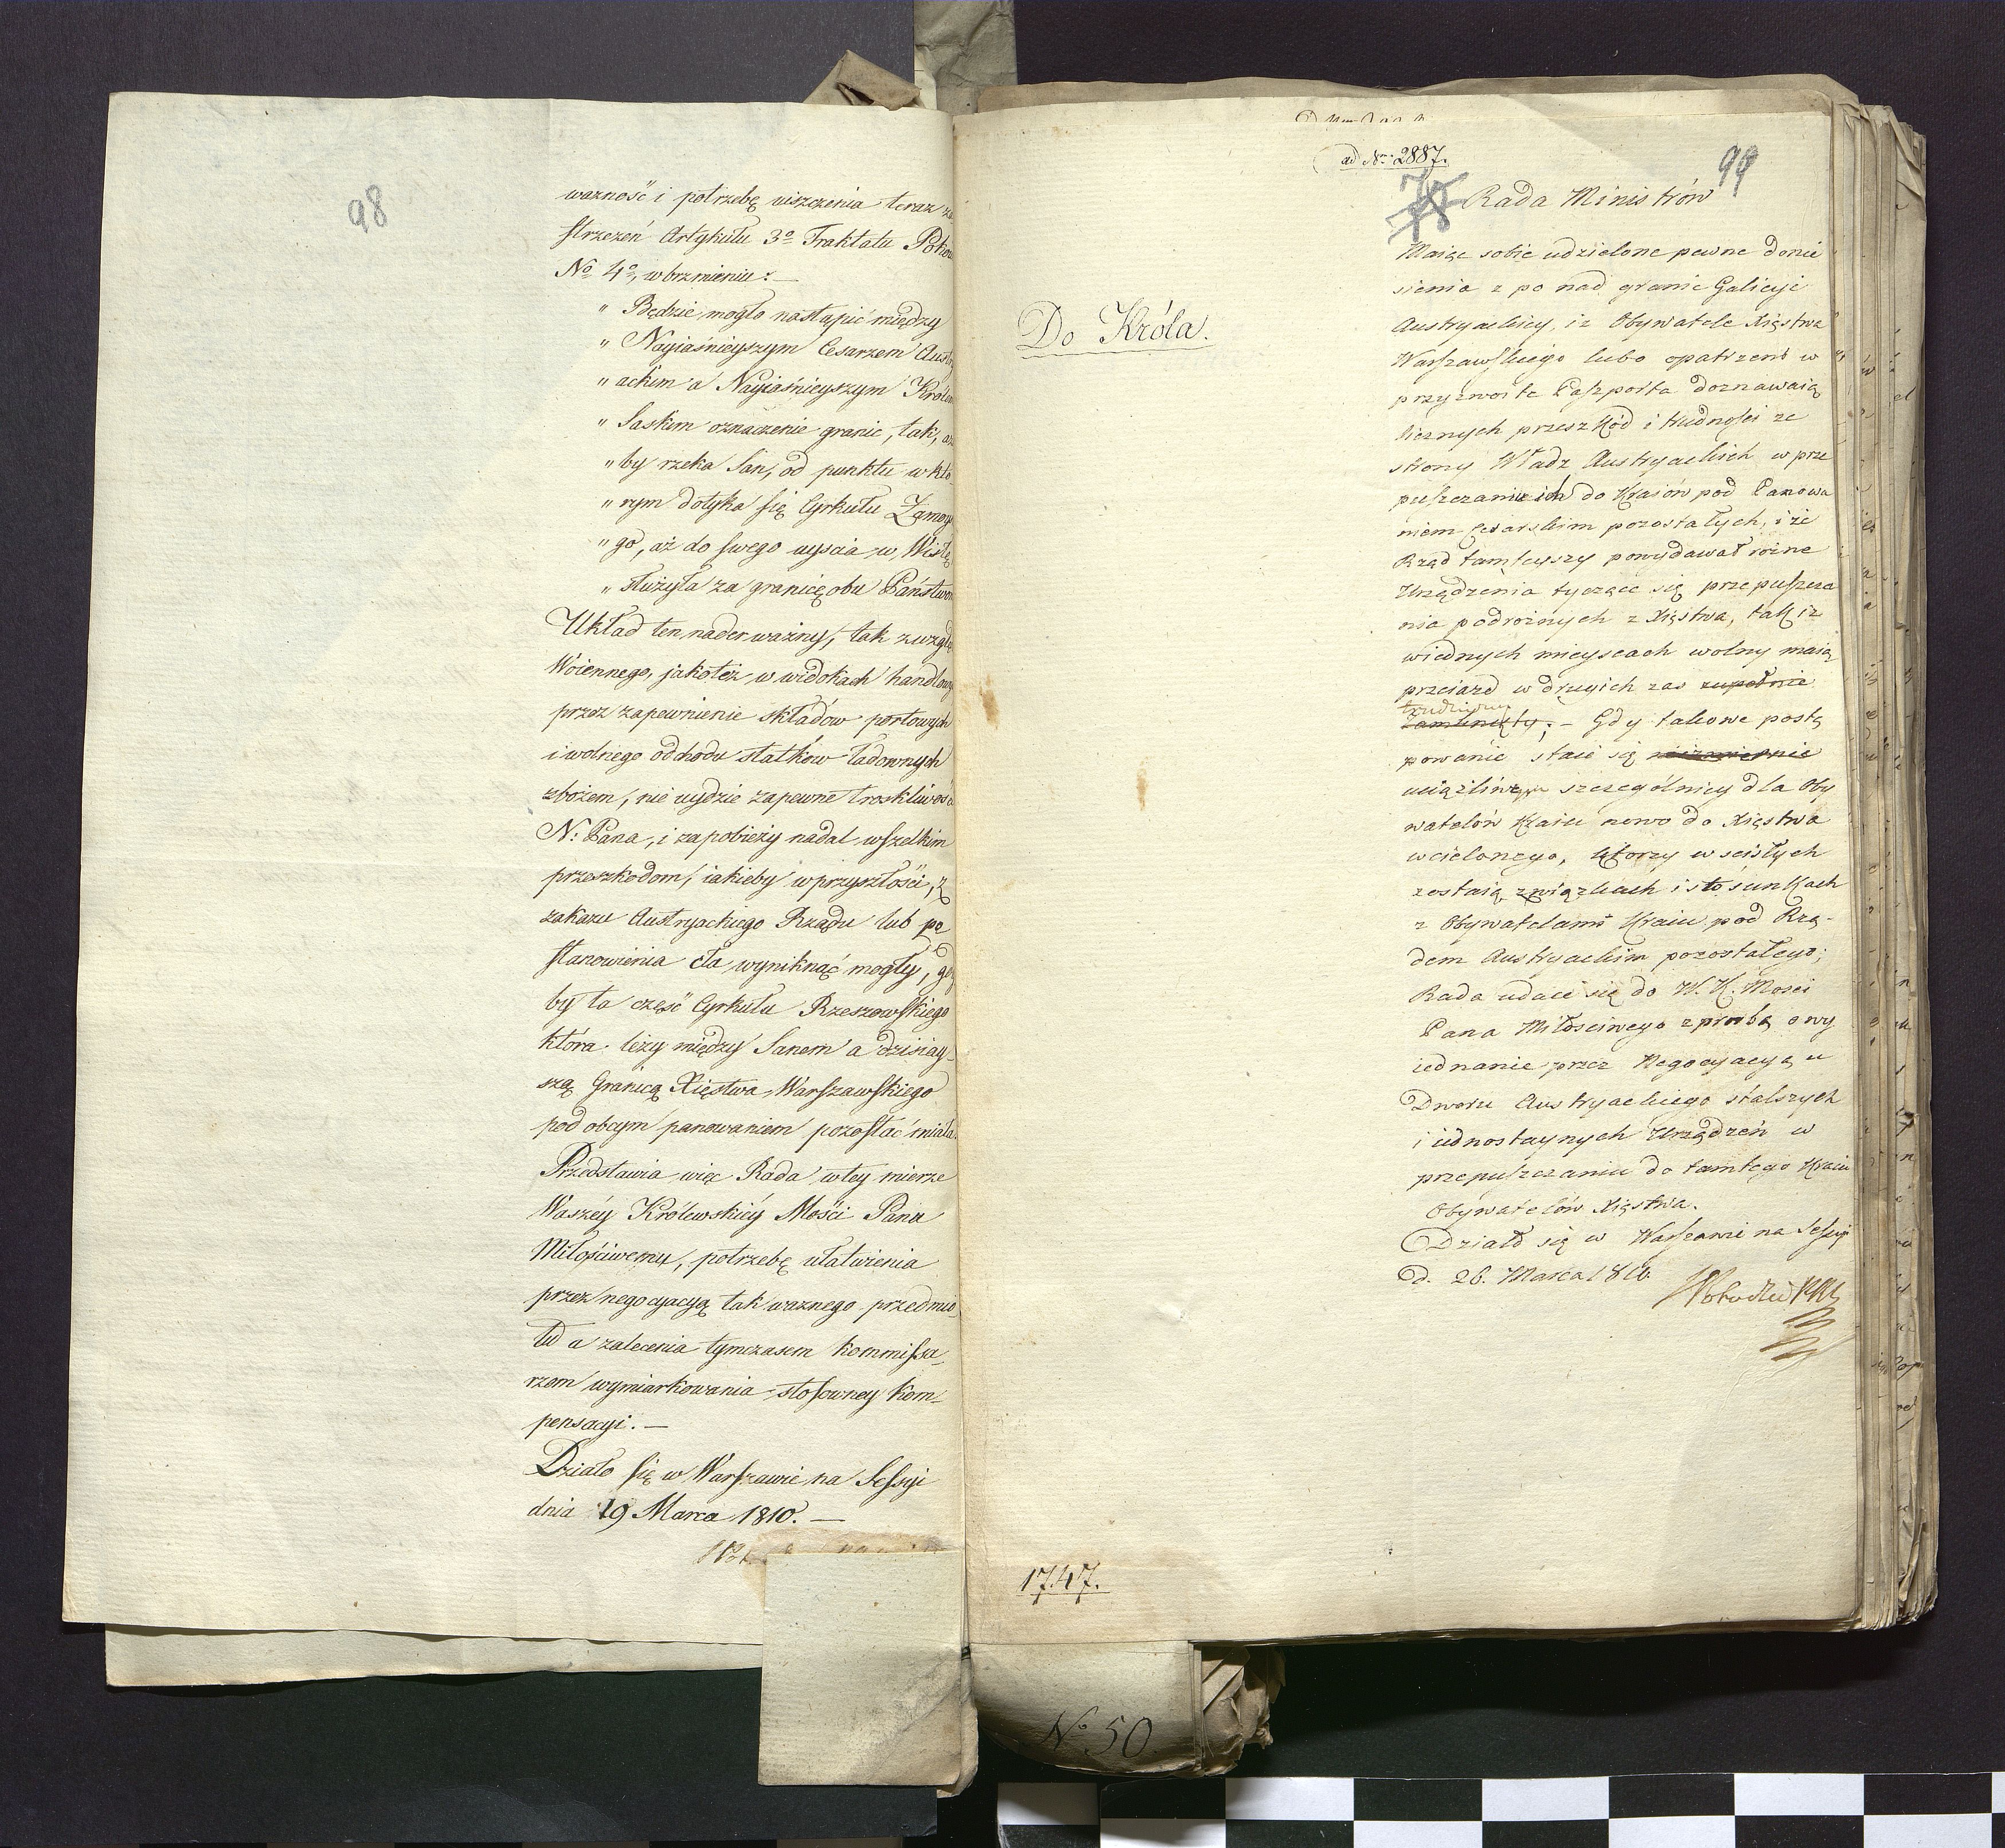 98
ważność i potrzebę uiszczenia teraz za
strzeżeń Artykułu 3º Traktatu Pokou
Nº 4º, w brzmieniu: —
„ Będzie mogło nastąpić między
„ Nayiaśnieyszym Cesarzem Austry
„ ackim a Nayiaśnieyszym Królem
„ Saskim oznaczenie granic, tak, a
„ by rzeka San, od punktu w któ-
„ rym dotyka się Cyrkułu Zamoy
„ go, aż do swego uyscia w Wisłę
„ służyła za granicę obu Państwom
Układ ten nader ważny, tak z wzglę
Woiennego, jakoteż w widokach handlowy
przez zapewnienie składów portowych
i wolnego odchodu statków ładownych
zbożem, nie uydzie zapewne troskliwość
N: Pana, i zapobieży nadal wszelkim
przeszkodom, iakieby w przyszłości, z
zakazu Austryackiego Rządu lub po
stanowienia cła wyniknąć mogły, gdy
by ta część Cyrkułu Rzeszowskiego
która leży między Sanem a dzisiay-
szą Granicą Xięstwa Warszawskiego
pod obcym panowaniem pozostać miała.
Przedstawia więc Rada w tey mierze
Waszéy Królewskiéy Mości Pana
Miłościwemu, potrzebę ułatwienia
przez negocyacyą tak ważnego przedmio-
tu a zalecenia tymczasem kommissa-
rzom wymiarkowania stosowney kom-
pensacyi. —
Działo się w Warszawie na Sessyi
dnia 19 Marca 1810. —
ad Nr: 2887.
99
78 Rada Ministrów
Do Króla.
Maiąc sobie udzielone pewne donie
sienia z po nad granic Galicyi
Austryackiey, iż Obywatele Xięstwa
Warszawskiego lubo opatrzeni w
przyzwoite Paszporta doznawaią
licznych przeszkód i trudności ze
strony Władz Austryackich w prze
puszczaniu ich do Kraiów pod Panowa
niem Cesarskim pozostałych, i że
Rząd tamteyszy powydawał rożne
Urządzenia tyczące się przepuszcza
nia podrożnych z Xięstwa, tak iż
w iednych mieyscach wolny maią
przeiazd w drugich zas zupełnie
trudniony
zamknięty; – Gdy takowe postę
powanie staie się niezmiernie
uciążliwym szczególniey dla Oby
watelów Kraiu nowo do Xięstwa
wcielonego, którzy w scisłych
zostaią związkach i stosunkach
z Obywatelami Kraiu pod Rzą-
dem Austryackim pozostałego;
Rada udaie się do W. K. Mosci
Pana Miłosciwego z prośbą o wy
iednanie przez Negocyacyą u
Dworu Austryackiego stalszych
i iednostaynych Urządzeń w
przepuszczaniu do tamtego Kraiu
Obywatelów Xięstwa.
Działo się w Warszawie na Sessyi
d. 26. Marca 1810.
1747.
Nº 50